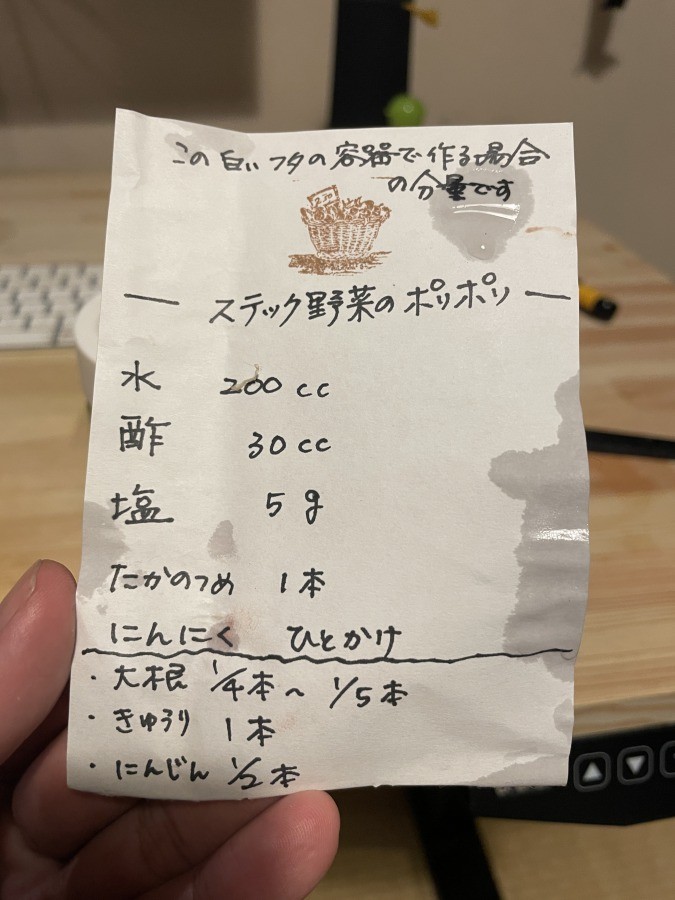 この白いフタの容器で作る場合
の分量です
230
ー スティック野菜のポリポリ ー
水 200cc
酢 30cc
塩 5g
たかのつめ 1本
にんにく ひとかけ
・大根 1/4本〜1/5本
・きゅうり 1本
・にんじん 1/2本